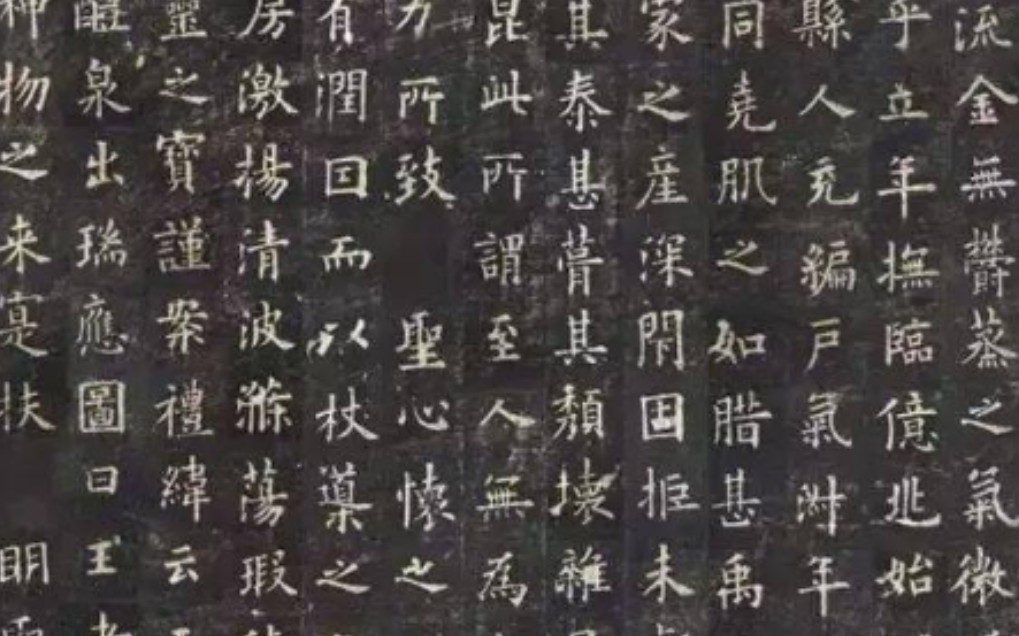 流金無欝蒸之氣微
乎立年撫臨億兆始
縣人充編戸氣淋年
同堯肌之如腊甚禹
家之産深閇囯拒未
其泰甚葺其頹壊雜
昆此所謂至人無為
力所致聖心懐之
有潤囙而以杖導之
房激揚清波滌蕩瑕
靈之寶謹案禮緯云
醴泉出瑞應圖曰王者
神物之来寔扶明